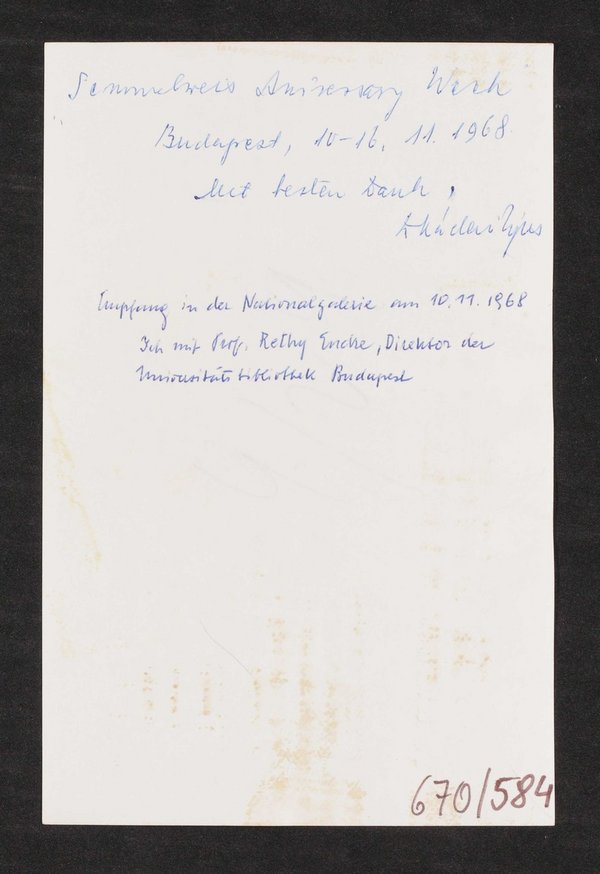 Semmelweis Aniversary Week
Budapest, 10-16. 11. 1968.
Mit besten Dank,
Empfang in der Nationalgalerie am 10.11.1968
Ich mit Prof. Rethy Endre, Direktor der
Universitätsbibliothek Budapest
670/584